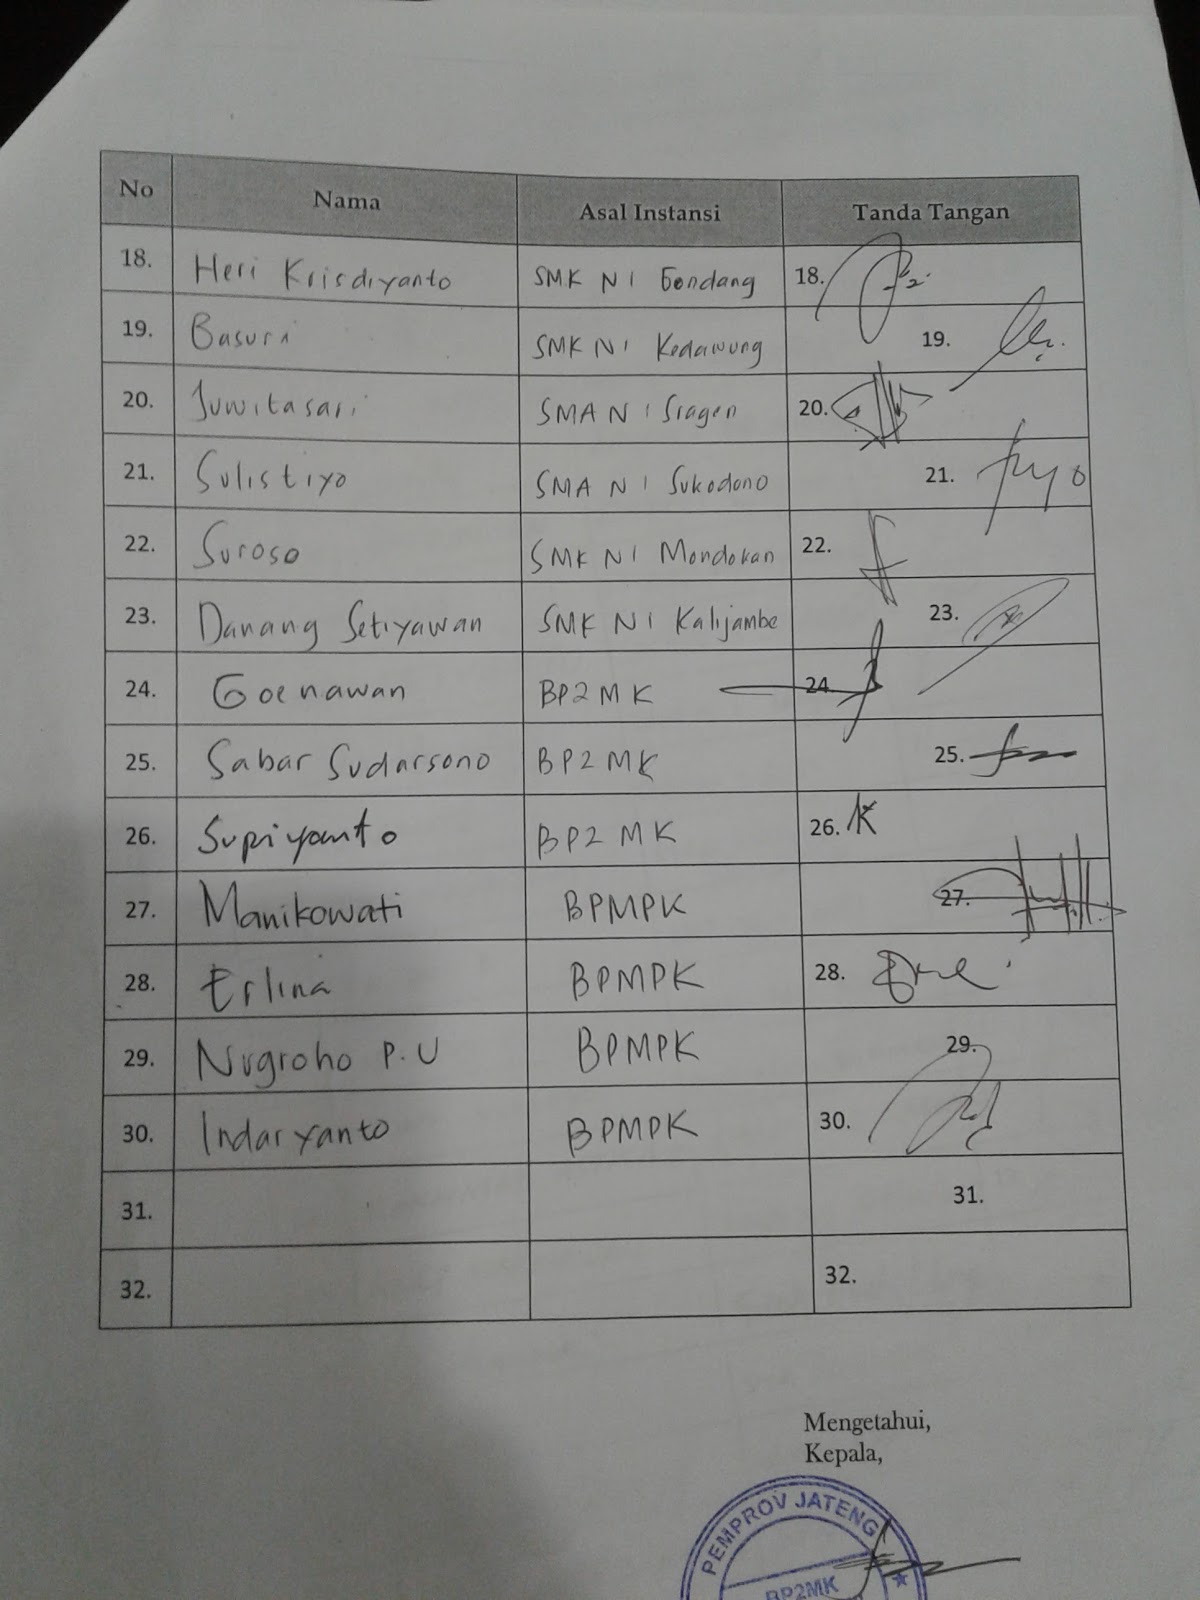 No Nama Asal Instansi Tanda Tangan
18. Heri Krisdiyanto SMK N 1 Gondang 18.
19. Basuri SMK N 1 Kedawung 19.
20. Juwitasari SMA N 1 Sragen 20.
21. Sulistiyo SMA N 1 Sukodono 21.
22. Suroso SMK N 1 Mondokan 22.
23. Danang Setiyawan SMK N 1 Kalijambe 23.
24. Goenawan BP2MK 24.
25. Sabar Sudarsono BP2MK 25.
26. Supriyanto BP2MK 26.
27. Manikowati BPMPK 27.
28. Erlina BPMPK 28.
29. Nugroho P.U BPMPK 29.
30. Indaryanto BPMPK 30.
31. 31.
32. 32.
Mengetahui,
Kepala,
PEMPROV JATENG
BP2MK